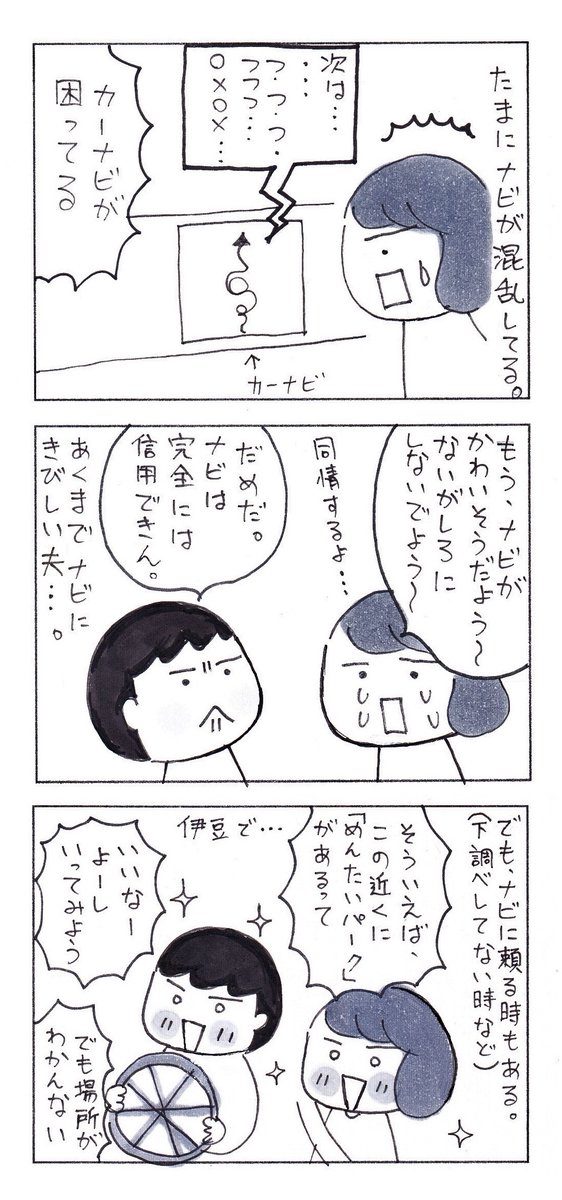 たまにナビが混乱してる。
次は…
…
つ・つ・つ・
つつつ…
○×○×…
カーナビが
困ってる
↑
カーナビ
もう、ナビが
かわいそうだよう〜
ないがしろに
しないでよう〜
同情するよ…
だめだ。
ナビは
完全には
信用できん。
あくまでナビに
きびしい夫…。
でも、ナビに頼る時もある。
(下調べしてない時など)
そういえば、
この近くに
「めんたいパーク」
があるって
伊豆で…
いいなー
よーし
いってみよう
でも場所が
わかんない